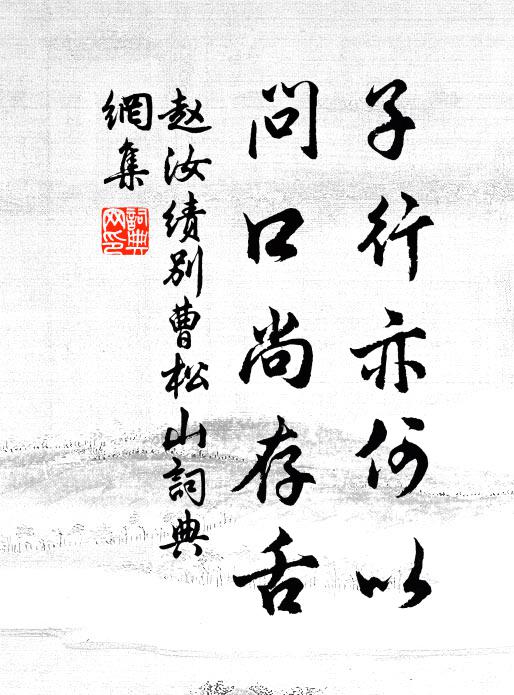 子行亦何以
問口尚存舌
赵汝绩别曹松山詞典
網集
詞典
网印